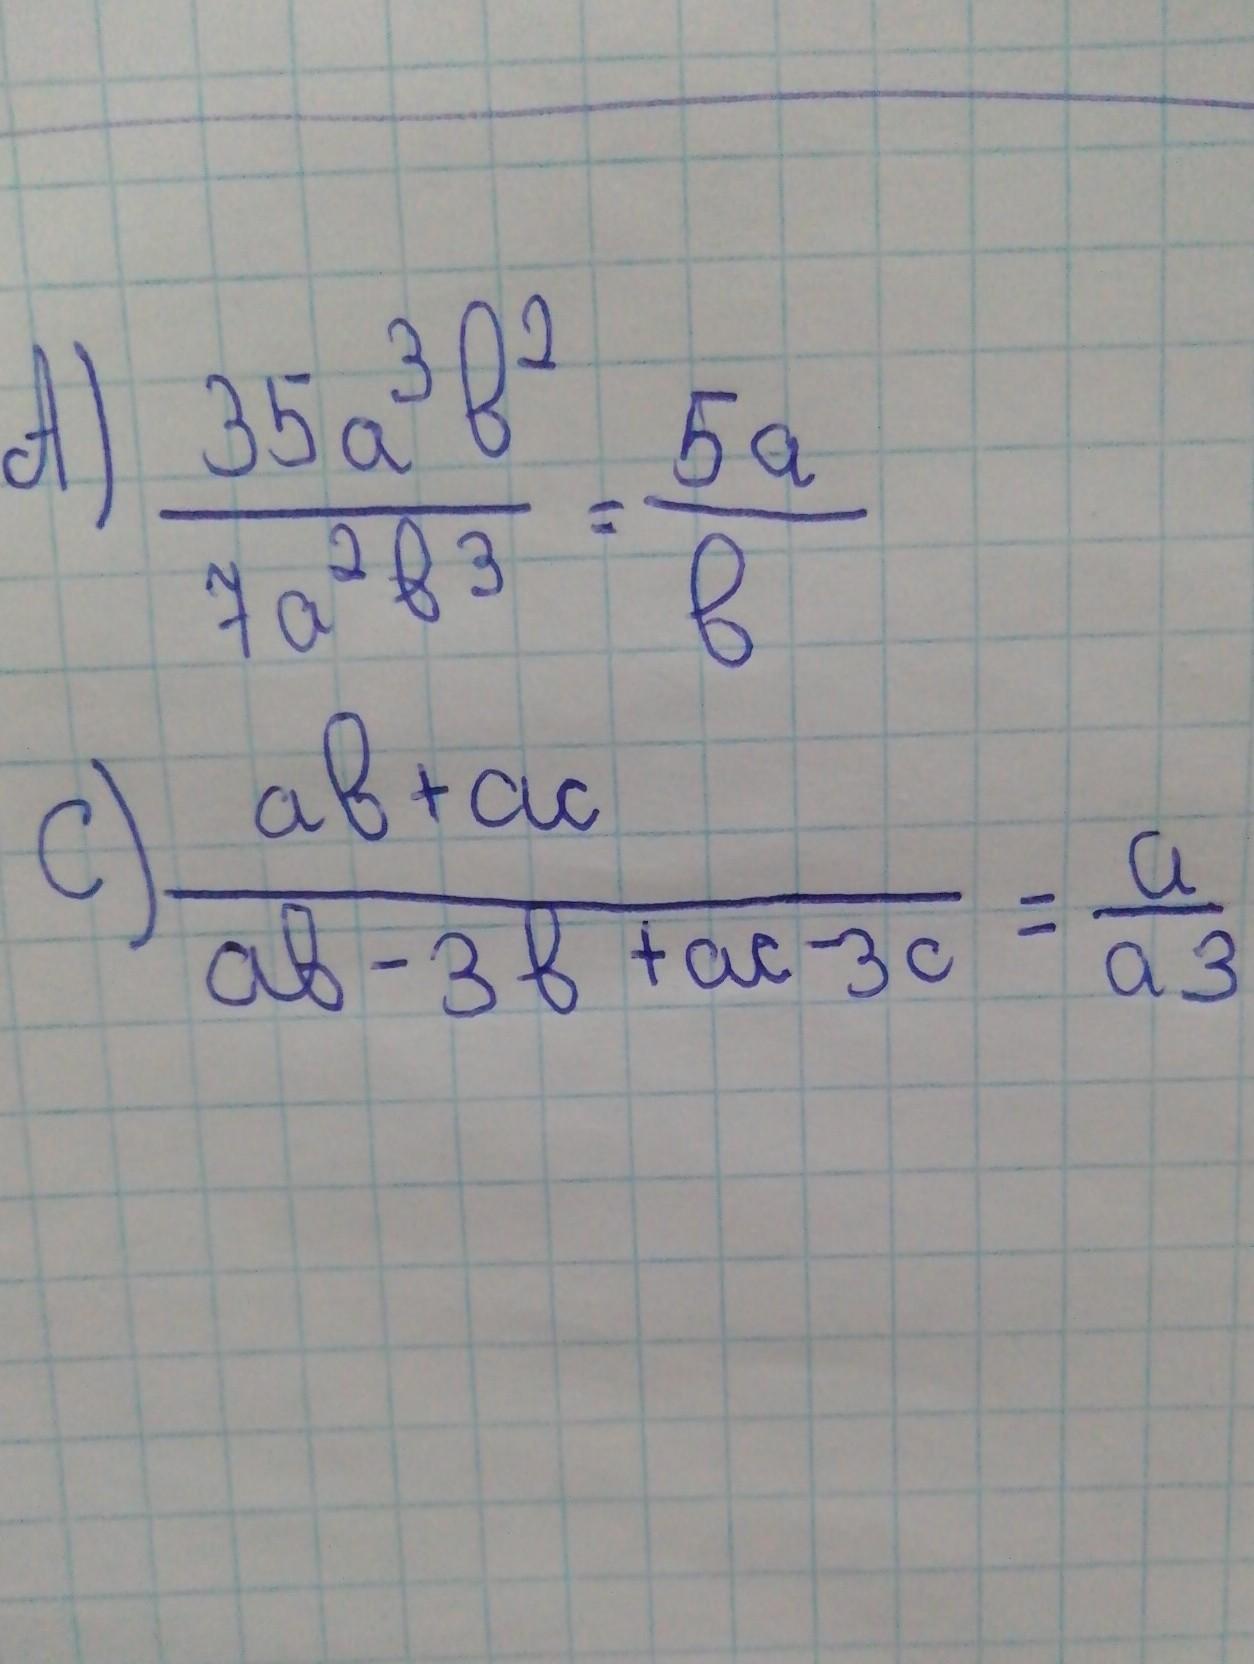 A) 35a³b² / 7a²b³ = 5a / b
C) ab+ac / ab-3b+ac-3c = a / a3